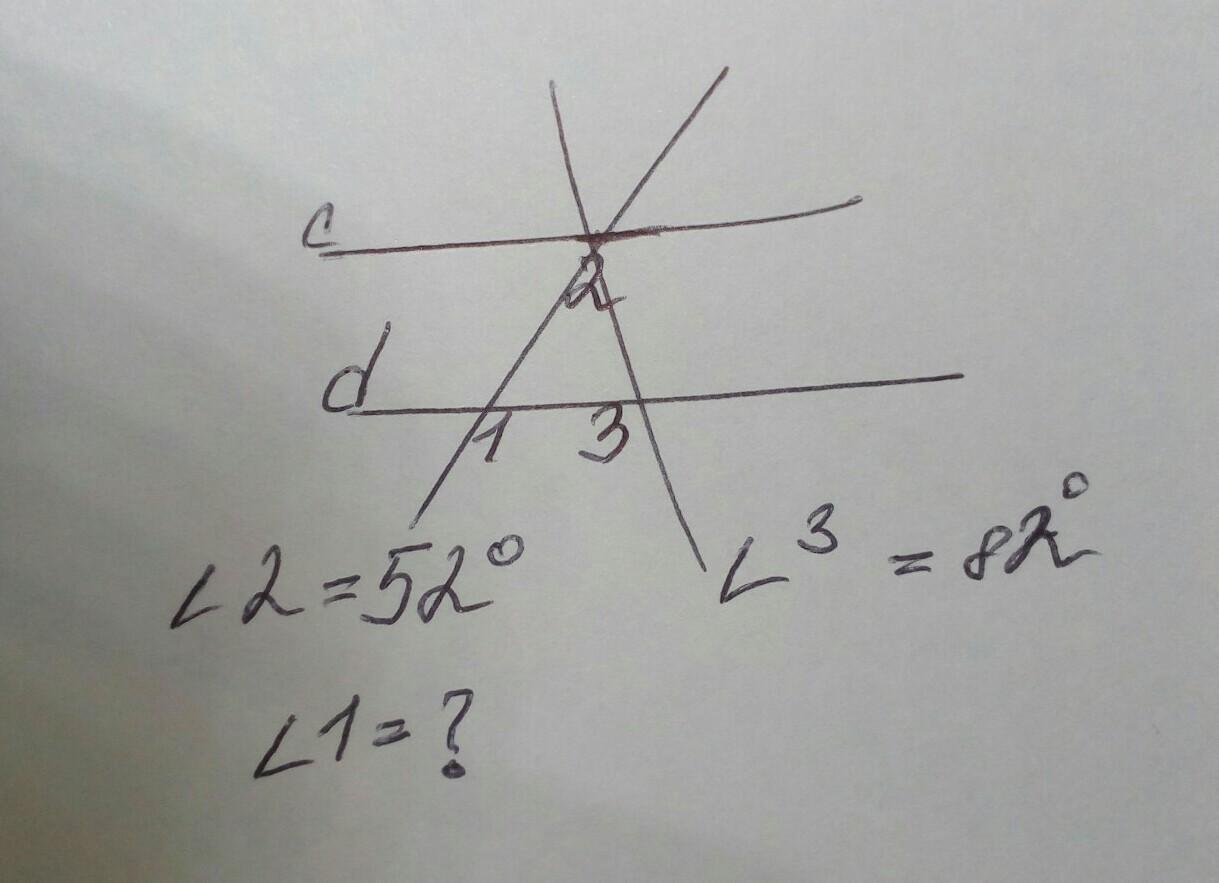 c
2
d
1 3
∠2=52°
∠3=82°
∠1=?